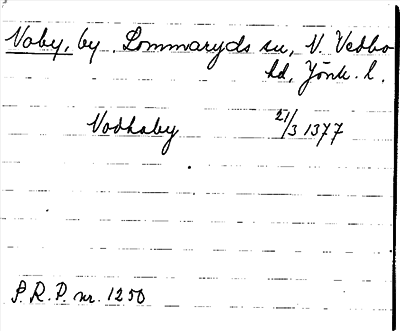 Noby, by. Lommaryds sn, N. Vedbo
hd, Jönk. l.
Nodhaby 21/3 1377
P. R. P. nr. 1250